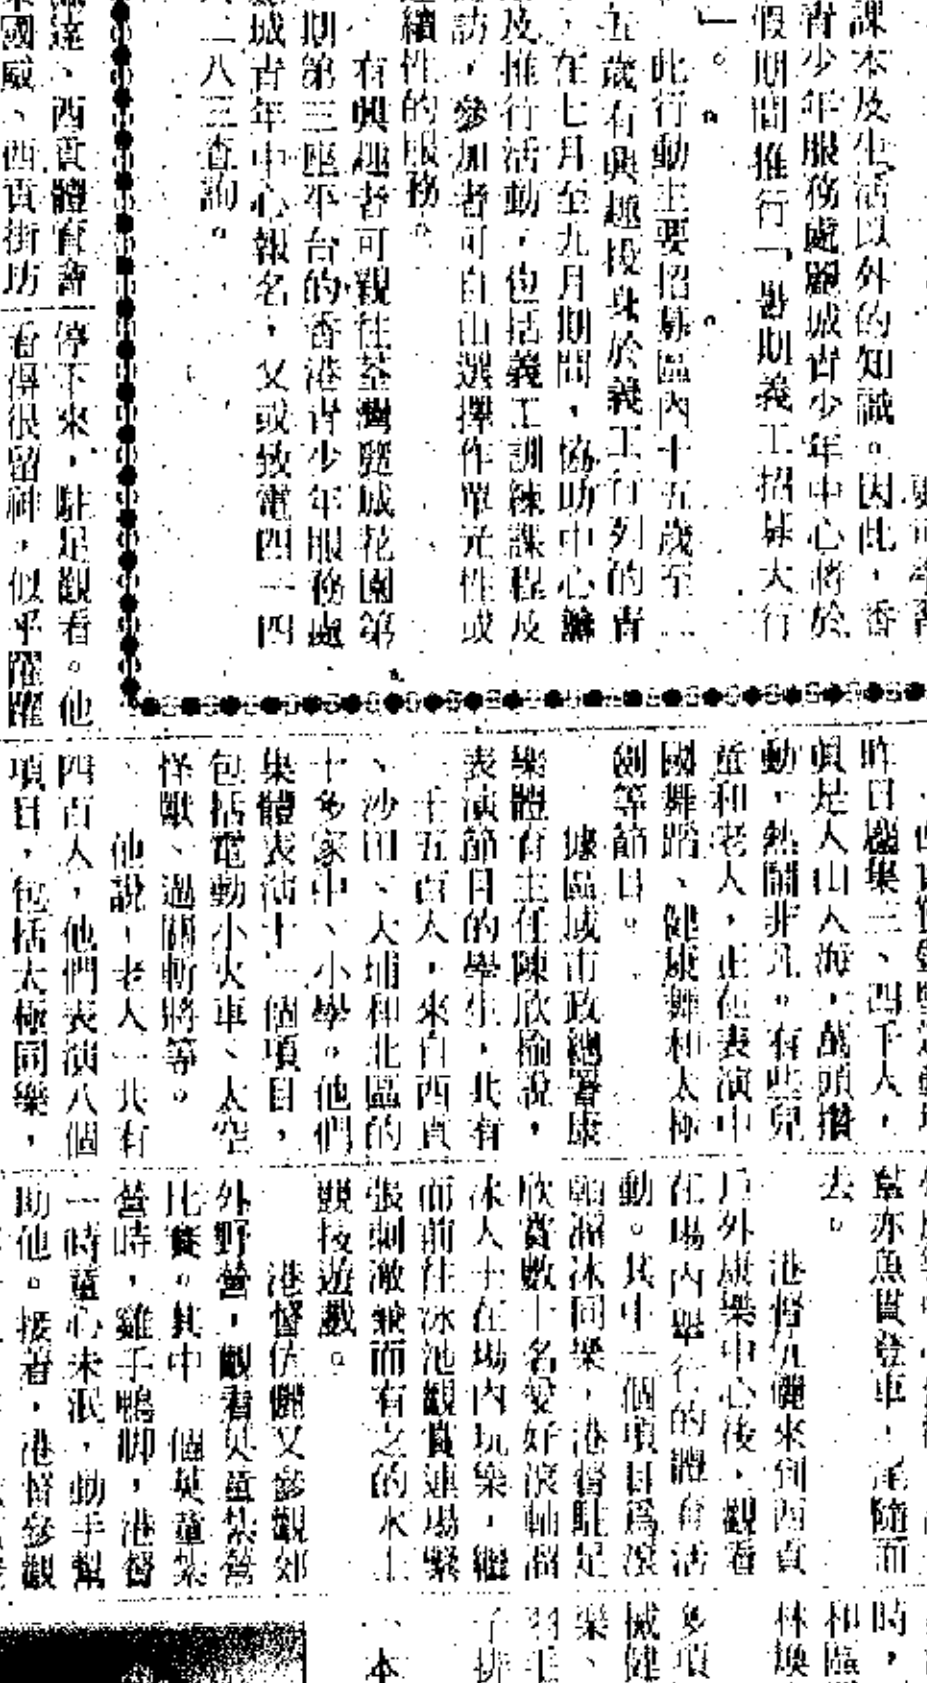 課本及生活以外的知識。因此,香
青少年服務處麗城青少年中心將於
假期間推行「暑期義工招募大行
」。
此行動主要招募區內十五歲至
五歲有興趣投身於義工行列的青
,在七月至九月期間,協助中心籌
及推行活動,包括義工訓練課程及
訪,參加者可自由選擇作單元性或
連續性的服務。
有興趣者可親往荃灣麗城花園第
期第三座平台的香港青少年服務處
城青年中心報名,又或致電四一四
二八三查詢。
達、西貢體育會
國威、西貢街坊
停下來,駐足觀看。他
看得很留神,似乎躍躍
昨日麕集三、四千人,
眞是人山人海,萬頭攢
動,熱鬧非凡。有些兒
童和老人,正在表演中
國舞蹈、健康舞和太極
劍等節目。
據區域市政總署康
樂體育主任陳欣榆說,
表演節目的學生,共有
千五百人,來自西貢
、沙田、大埔和北區的
十多家中、小學。他們
集體表演十一個項目,
包括電動小火車、太空
怪獸、過關斬將等。
他說,老人一共有
四百人,他們表演八個
項目,包括太極同樂,
羣亦魚貫登車,尾隨而
去。
港督伉儷來到西貢
戶外康樂中心後,觀看
在場內舉行的體育活
動。其中一個項目爲滾
軸溜冰同樂,港督駐足
欣賞數十名愛好滾軸溜
冰人士在場內玩樂,繼
而前往泳池觀賞連場緊
張刺激兼而有之的水上
競技遊戲。
港督伉儷又參觀郊
外野營,觀看英童紮營
比賽。其中一個英童紮
營時,雞手鴨脚,港督
一時童心未泯,動手幫
助他。接着,港督參觀
時,
和區
林煥
多項
械健
樂、
羽毛
子排
、本